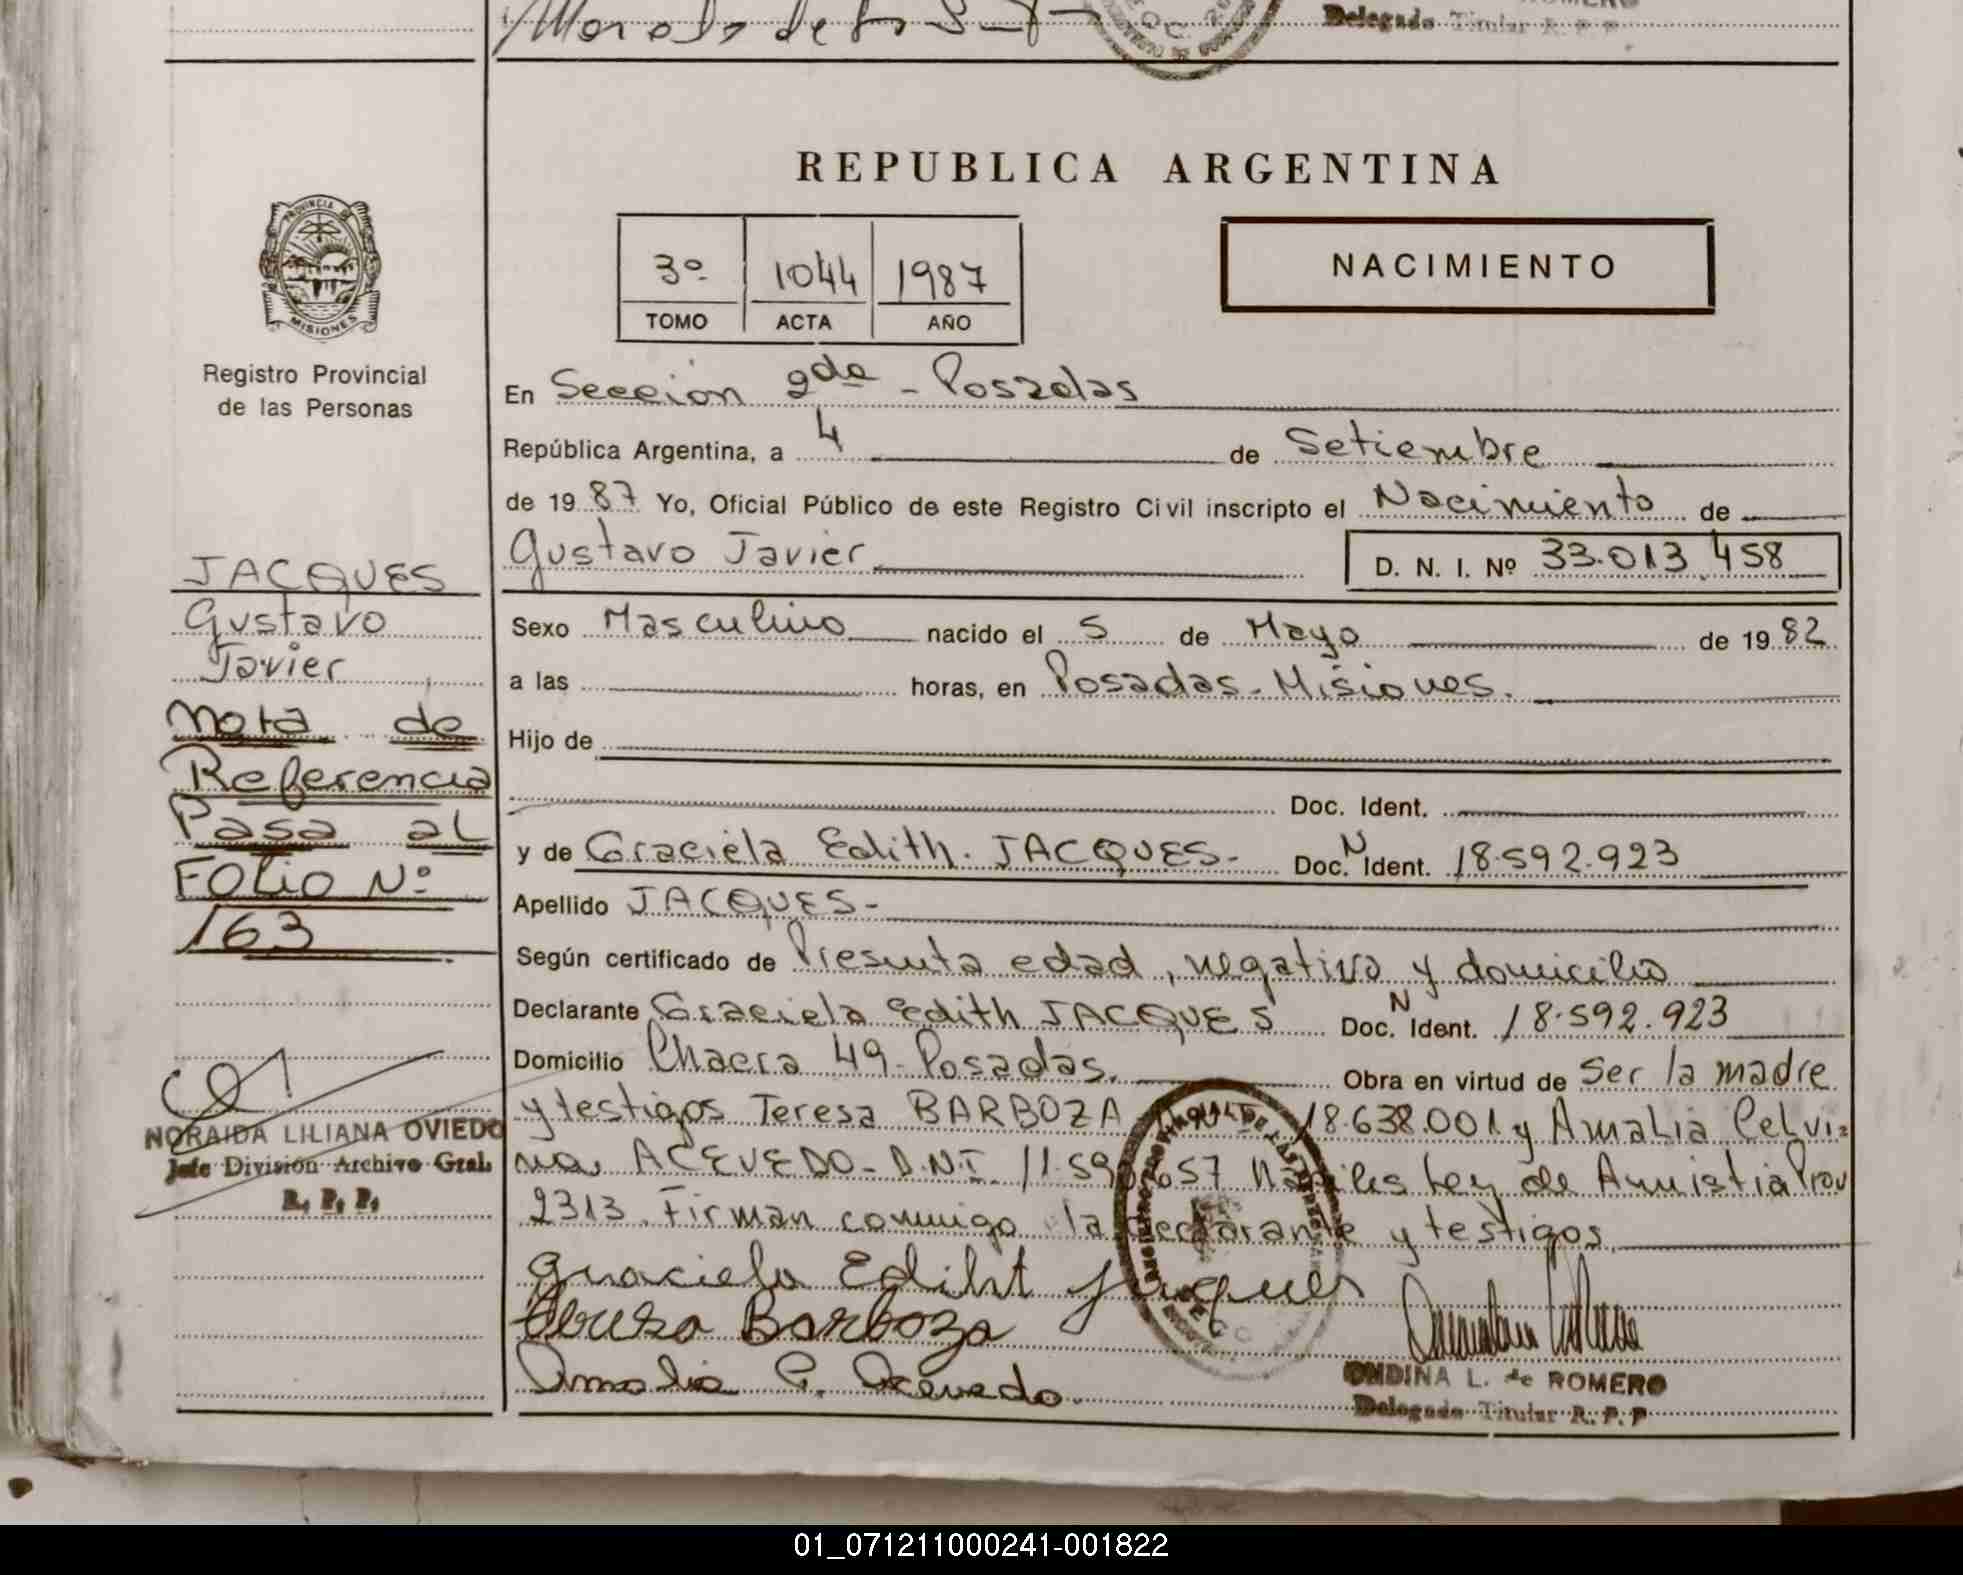 Delegado Titular R. P. P.
REPUBLICA ARGENTINA
PROVINCIA DE
MISIONES
3º 1044 1987
TOMO ACTA AÑO
NACIMIENTO
Registro Provincial
de las Personas
En Seccion 2da - Posadas
República Argentina, a 4 de Setiembre
de 19 87 Yo, Oficial Público de este Registro Civil inscripto el Nacimiento de
Gustavo Javier D. N. I. Nº 33.013.458
JACQUES
Gustavo
Javier
Nota de
Referencia
Pasa al
FOLIO Nº
163
Sexo Masculino nacido el 5 de Mayo de 19 82
a las horas, en Posadas-Misiones.
Hijo de
Doc. Ident.
y de Graciela Edith. JACQUES- Doc. N Ident. 18.592.923
Apellido JACQUES-
Según certificado de Presunta edad, negativa y domicilio
Declarante Graciela Edith JACQUES Doc. N Ident. 18.592.923
Domicilio Chacra 49-Posadas. Obra en virtud de Ser la madre
y testigos Teresa BARBOZA 18.638.001 y Amalia Celvi=
na ACEVEDO-D.N.I. Ley de Amnistia Prov
2313. Firman conmigo la declarante y testigos.
NORAIDA LILIANA OVIEDO
Jefe División Archivo Gral.
R. P. P.
Graciela Ediht Jaques
Teresa Barboza
Amalia C. Acevedo.
ONDINA L. de ROMERO
Delegado Titular R. P. P
01_071211000241-001822